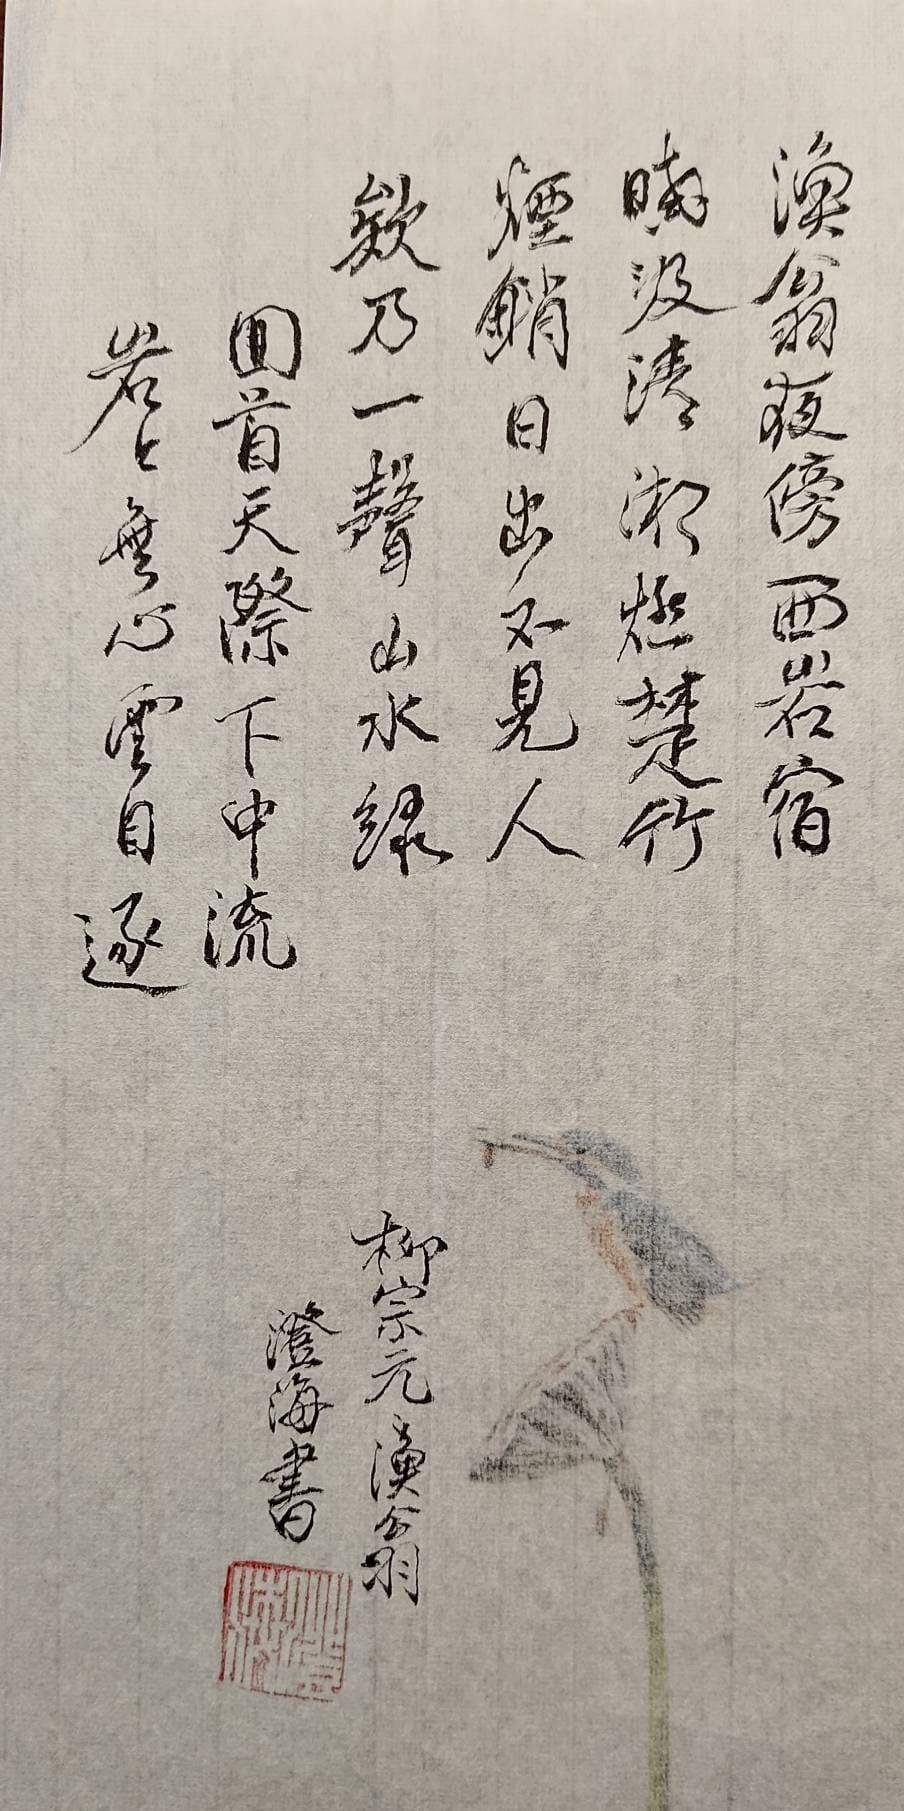 漁翁夜傍西岩宿
曉汲清湘燃楚竹
煙銷日出不見人
欸乃一聲山水綠
回首天際下中流
岩上無心雲自逐
柳宗元漁翁
澄海書